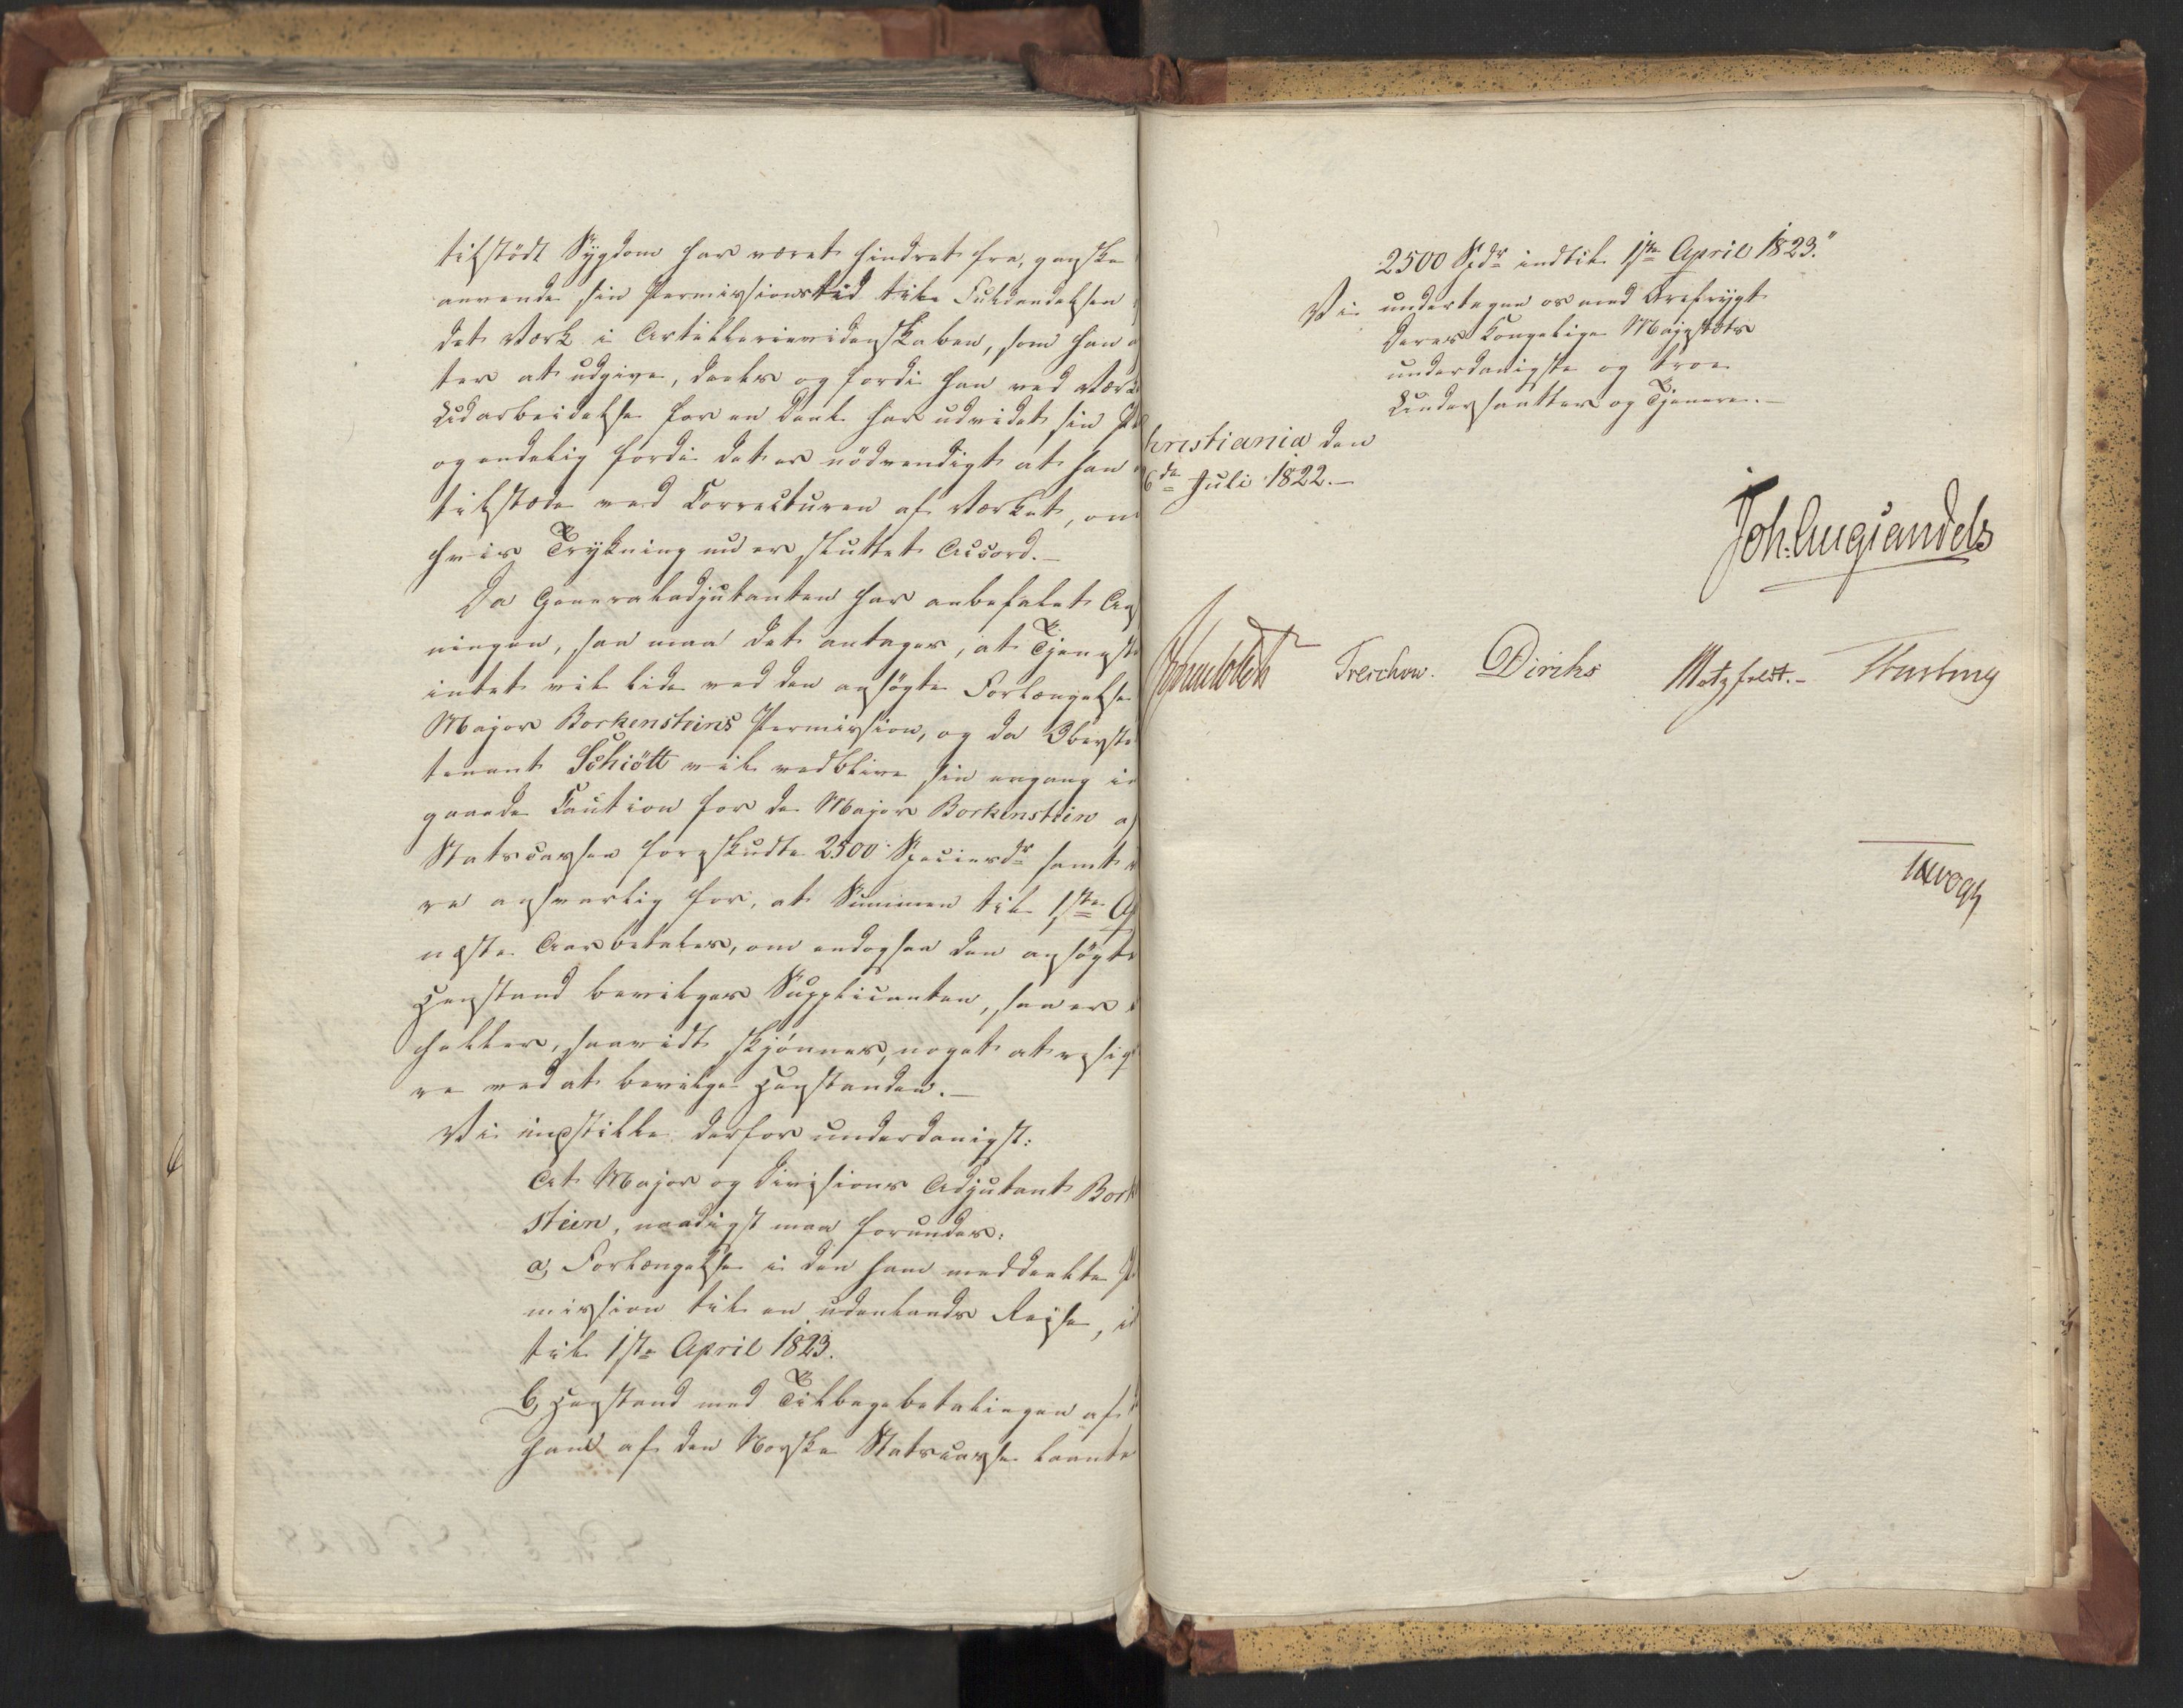 tilstödt Sygdom har været hindret fra, ganske
anvende sin Permissionstid til Fuldendelsen
det Værk i Artillerievidenskaben, som han a
ter at udgive, deels og fordi han ved Værk
Udarbeidelse for en Deel har udvidet sin Pl
og endelig fordi det er nödvendigt at han
tilstede ved Correcturen af Værket, om
hvis Trykning nu er sluttet Accord.—
Da Generaladjutanten har anbefalet An
ningen, saa maa det antages, at Tjeneste
intet vil lide ved den ansögte Forlængelse
Major Borkensteins Permission, og da Oberst
tenant Schiött vil vedblive sin engang in
gaaede Caution for de Major Borkenstein a
Statscassen forskudte 2500 Speciesdr samt
re ansvarlig for, at Summen til 1ste Ap
næste Aar betales, om endogsaa den ansögte
Henstand bevilges Supplicanten, saa er
heller, saavidt skjönnes, noget at
re ved at bevilge Henstanden.—
Vi indstille derfor underdanigst:
At Major og Divisions Adjutant Bork
stein, naadigst maa forundes:
a, Forlængelse i den ham meddeelte P
mission til en udenlands Reise, i
til 1ste April 1823.
b, Henstand med Tilbagebetalingen af
ham af den Norske Statscasse laante
2500 Spdr indtil 1ste April 1823."
Vi undertegne os med Ærefrygt
Deres Kongelige Majestæts
underdanigste og troe
Undersaatter og Tjenere.—
hristiania den
6de Juli 1822.—
Joh: Aug: Sandels
Treschow. Diriks Motzfeldt.— Fasting
JHVogt